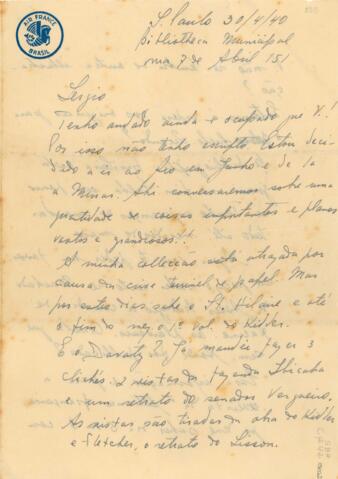 AIR FRANCE
BRASIL
S. Paulo 30/4/40
Bibliotheca Municipal
rua 7 de Abril 151
Sergio
Tenho andado ainda + ocupado que V.!
Por isso não tenho escripto. Estou deci-
dido a ir ao Rio em Junho e de lá
a Minas. Ahi conversaremos sobre uma
quantidade de coisas importantes e planos
vastos e grandiosos!!
A minha collecção está atrazada por
causa da crise de papel. Mas
por estes dias sahe o St. Hilaire e até
o fim do mez o 1º vol. do Kidder.
E o Davatz? Já mandei fazer 3
clichés: 2 vistas da fazenda Ibicaba
e um retrato do senador Vergueiro.
As vistas são tiradas da obra do Kidder
e Fletcher, o retrato do Sisson.